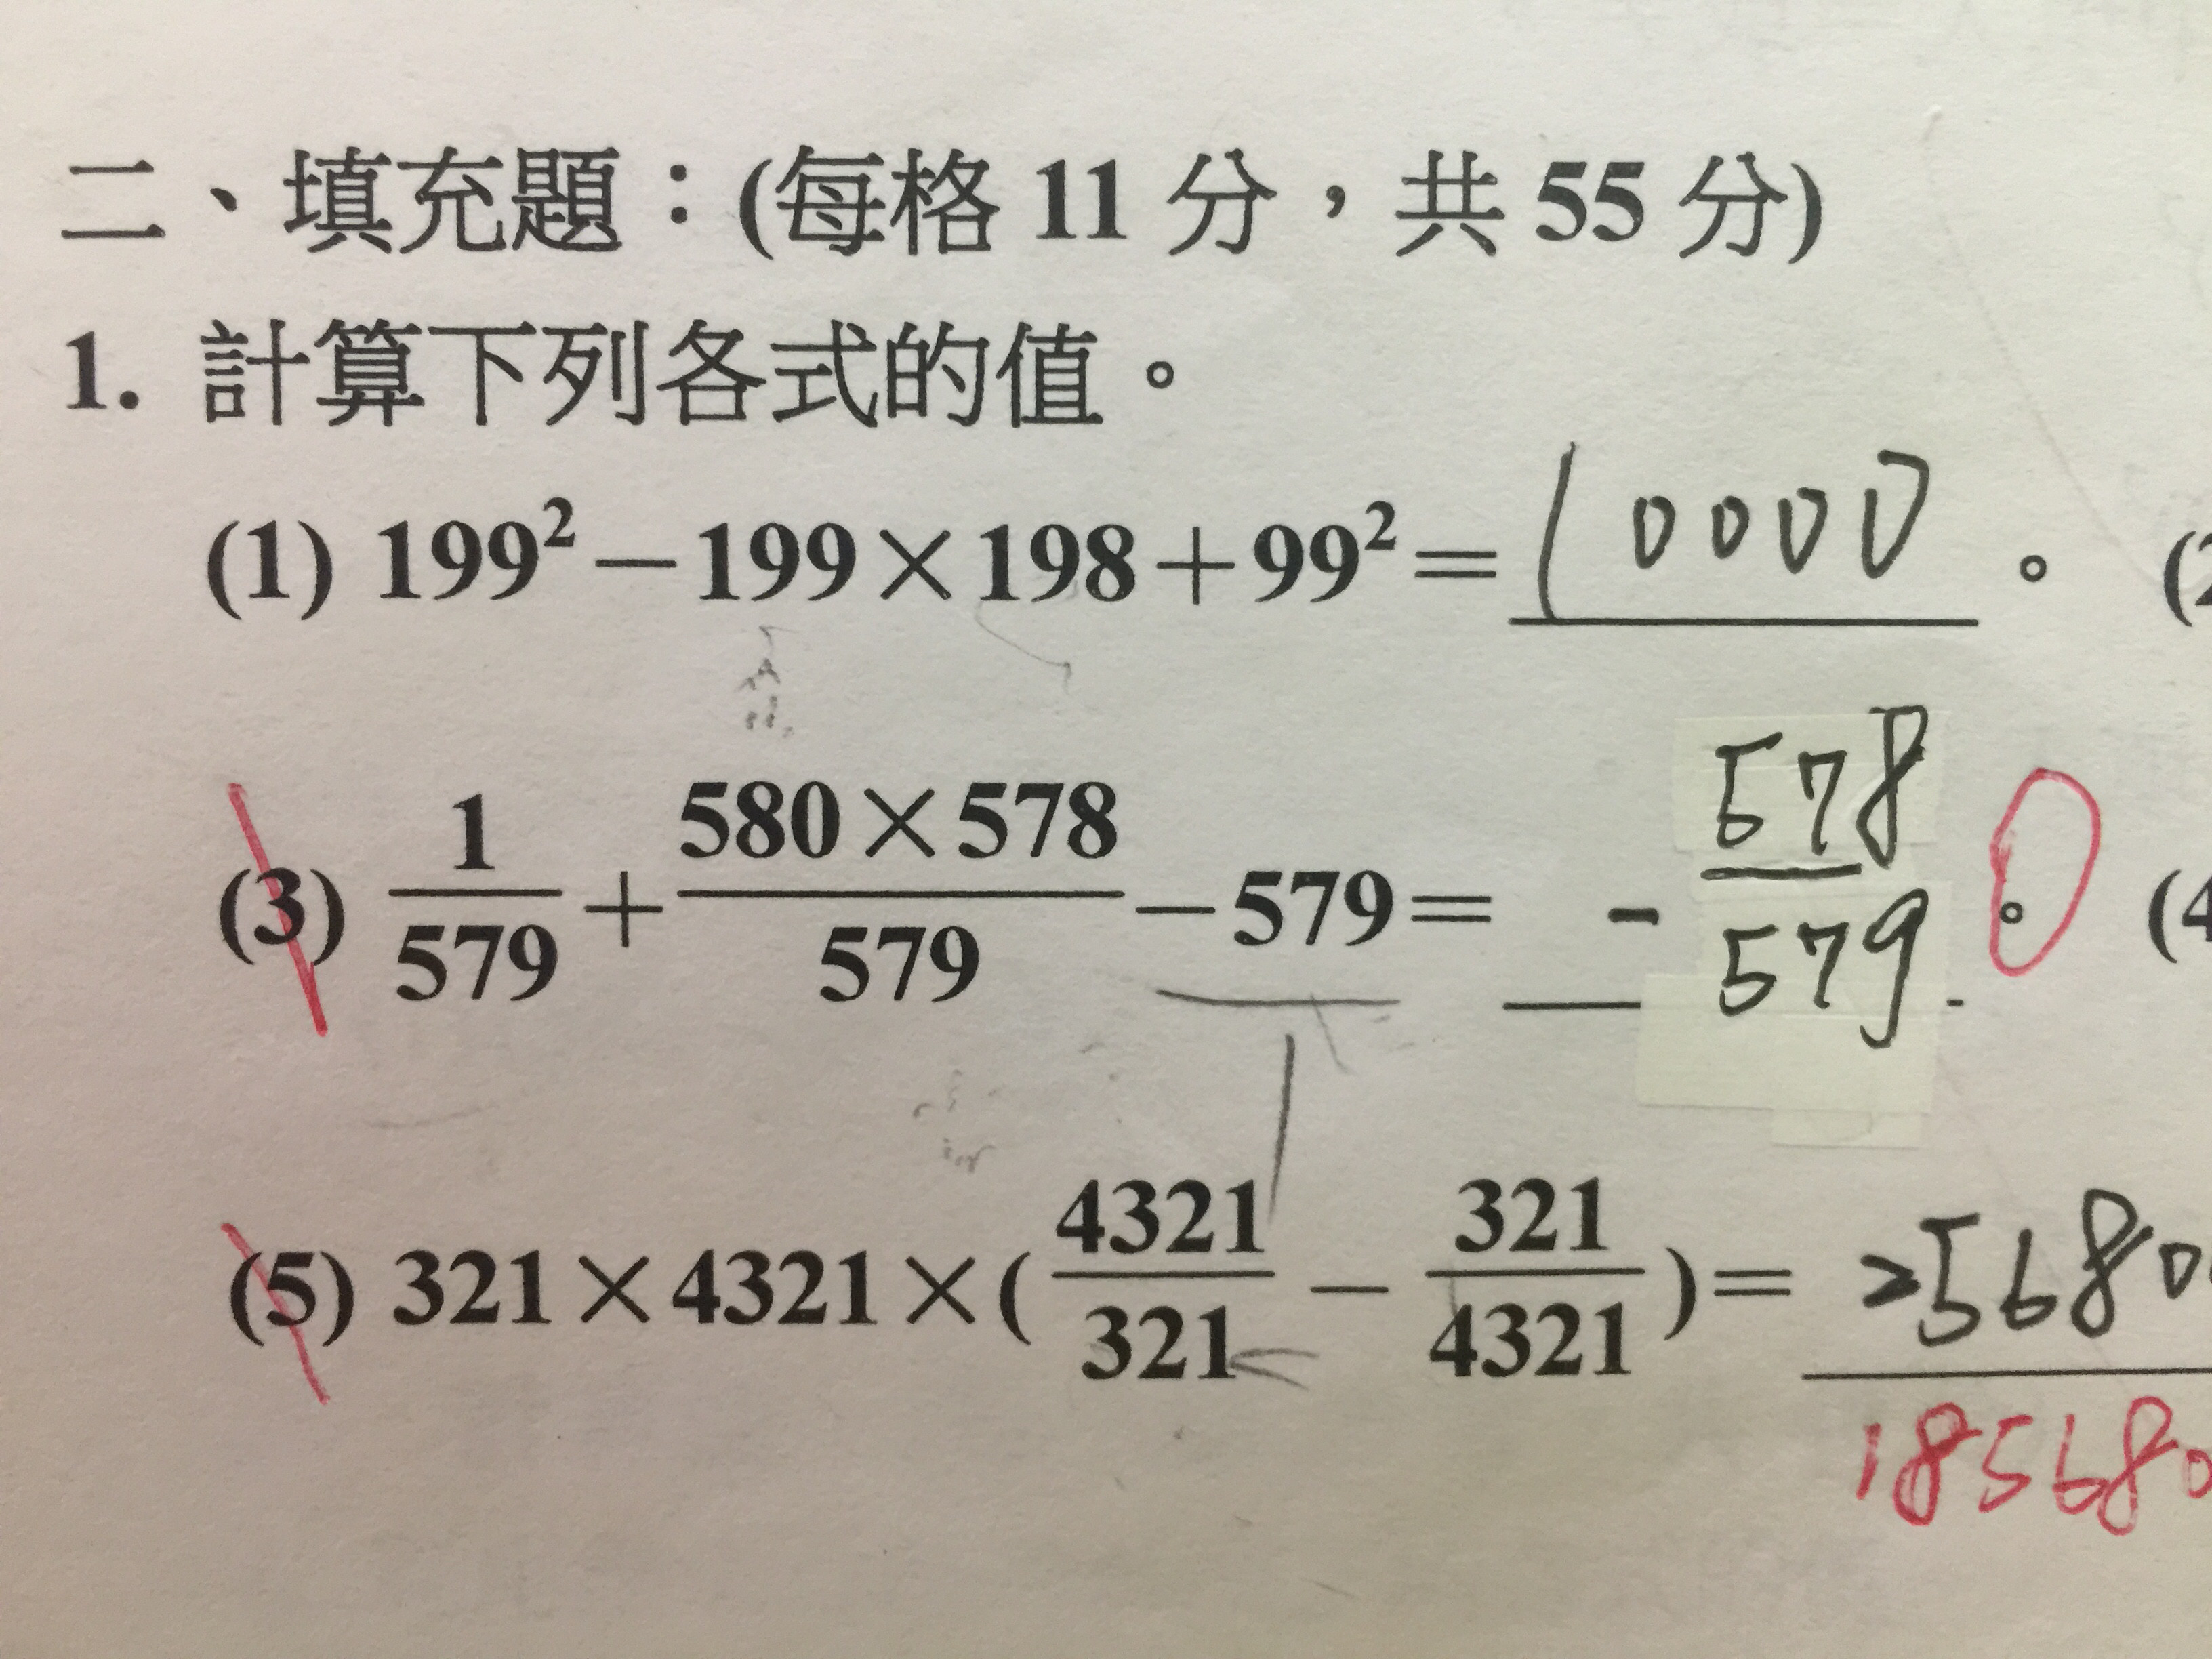 二、填充題：(每格 11 分，共 55 分)
1. 計算下列各式的值。
(1) 199² − 199 × 198 + 99² = 10000 。 (2
(3) 1/579 + 580 × 578/579 − 579 = - 578/579 。 0 (4
(5) 321 × 4321 × ( 4321/321 − 321/4321 ) = 25680
185680